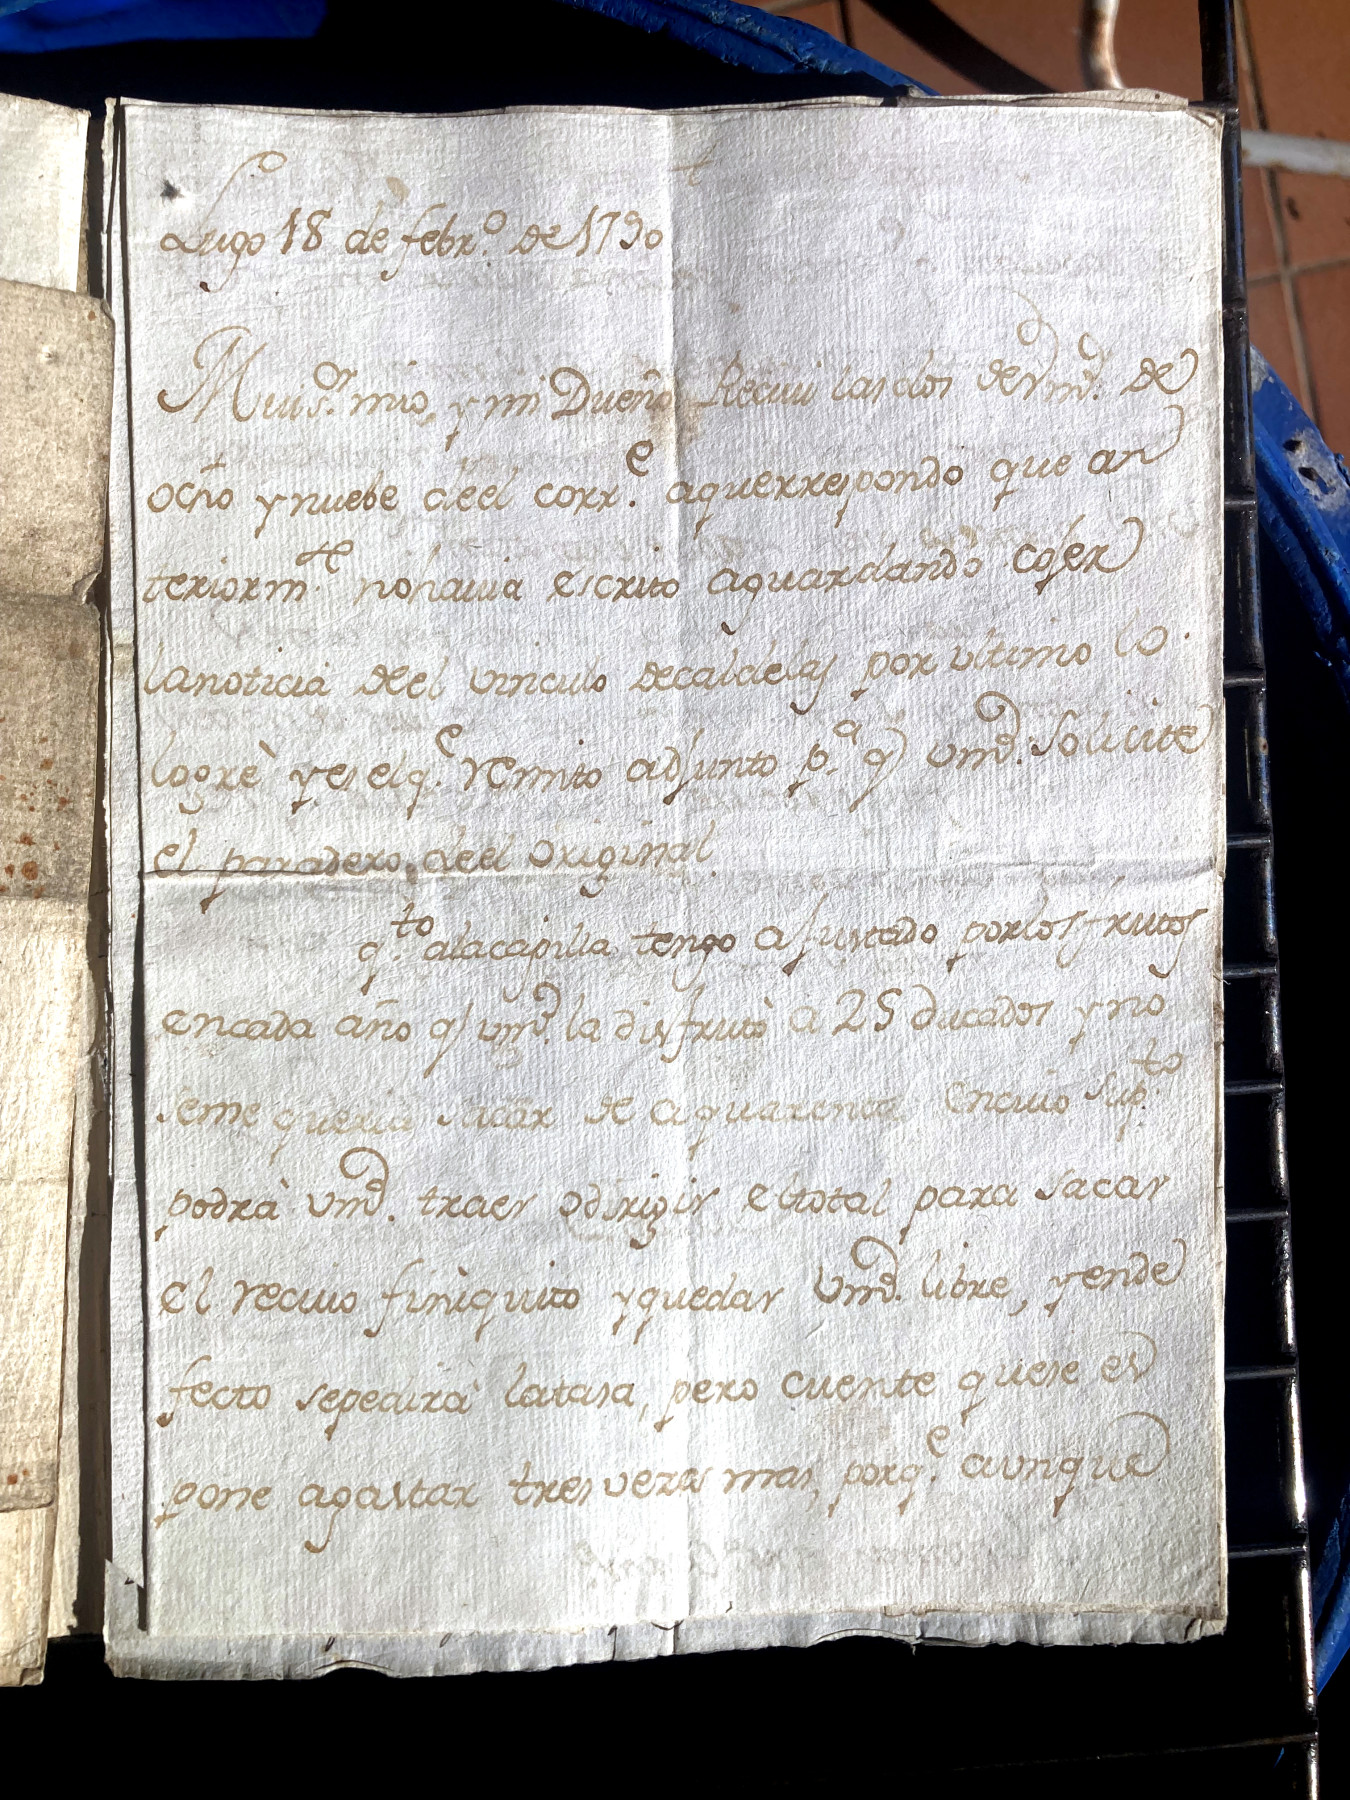 +
Lugo 18 de febr.º de 1790
Mui s.or mio, y mi Dueño Recivi las dos de Vmd. de
ocho y nuebe de el corr.e a que rrespondo que an
teriorm.te no havia escrito aguardando cojer
la noticia de el vinculo de caldelas por ultimo lo
logrè y es el q.e remito adjunto p.a q vmd. Solicite
el paradero de el original.
q.to a la capilla tengo ajustado por los frutos
en cada año q vmd. la disfrutò a 25 ducados y no
se me queria sacar de a quarenta en cuio sup.to
podrà vmd. traer o dirigir el total para sacar
el recivo finiquito y quedar Vmd. libre, y en de
fecto se pedirà la tasa, pero cuente que se es
pone a gastar tres vezes mas, porq.e aunque